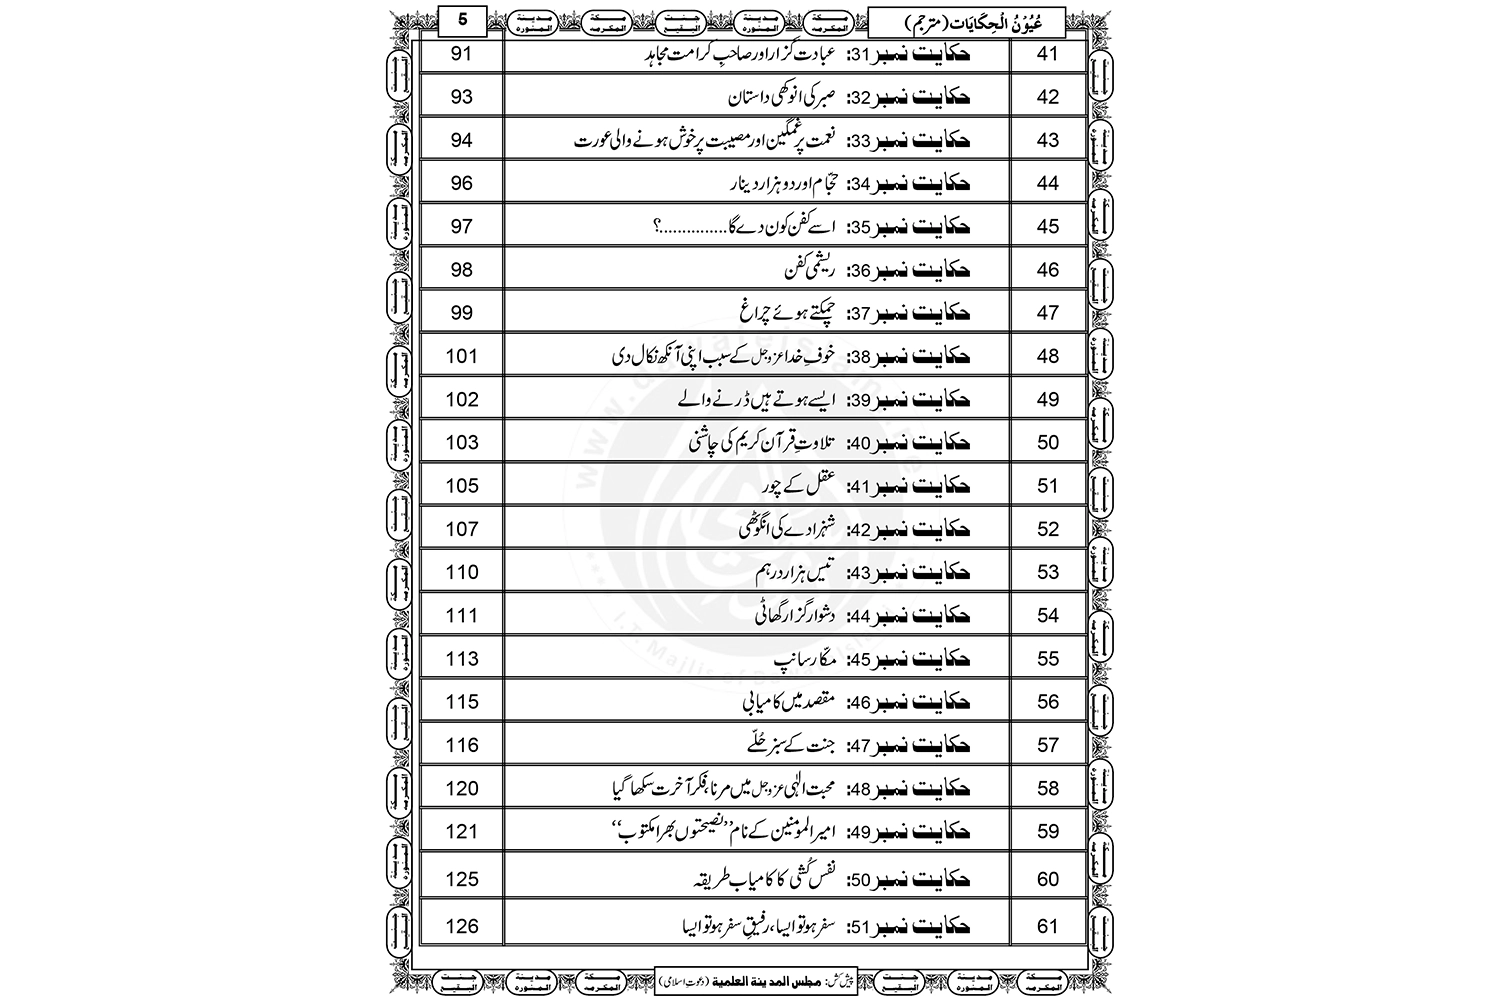 عُیُوْنُ الْحِکَایَات (مترجم) 5
41 حکایت نمبر31: عبادت گزار اور صاحبِ کرامت مجاہد 91
42 حکایت نمبر32: صبر کی انوکھی داستان 93
43 حکایت نمبر33: نعمت پر غمگین اور مصیبت پر خوش ہونے والی عورت 94
44 حکایت نمبر34: حَجَّام اور دو ہزار دینار 96
45 حکایت نمبر35: اسے کفن کون دے گا...............؟ 97
46 حکایت نمبر36: ریشمی کفن 98
47 حکایت نمبر37: چمکتے ہوئے چراغ 99
48 حکایت نمبر38: خوفِ خدا عزوجل کے سبب اپنی آنکھ نکال دی 101
49 حکایت نمبر39: ایسے ہوتے ہیں ڈرنے والے 102
50 حکایت نمبر40: تلاوتِ قرآن کریم کی چاشنی 103
51 حکایت نمبر41: عقل کے چور 105
52 حکایت نمبر42: شہزادے کی انگوٹھی 107
53 حکایت نمبر43: تیس ہزار درہم 110
54 حکایت نمبر44: دشوار گزار گھاٹی 111
55 حکایت نمبر45: مکّار سانپ 113
56 حکایت نمبر46: مقصد میں کامیابی 115
57 حکایت نمبر47: جنت کے سبز حُلّے 116
58 حکایت نمبر48: محبت الٰہی عزوجل میں مرنا، فکر آخرت سکھا گیا 120
59 حکایت نمبر49: امیر المؤمنین کے نام ’’نصیحتوں بھرا مکتوب‘‘ 121
60 حکایت نمبر50: نفس کُشی کا کامیاب طریقہ 125
61 حکایت نمبر51: سفر ہو تو ایسا، رفیقِ سفر ہو تو ایسا 126
پیش کش: مجلس المدینۃ العلمیۃ (دعوتِ اسلامی)